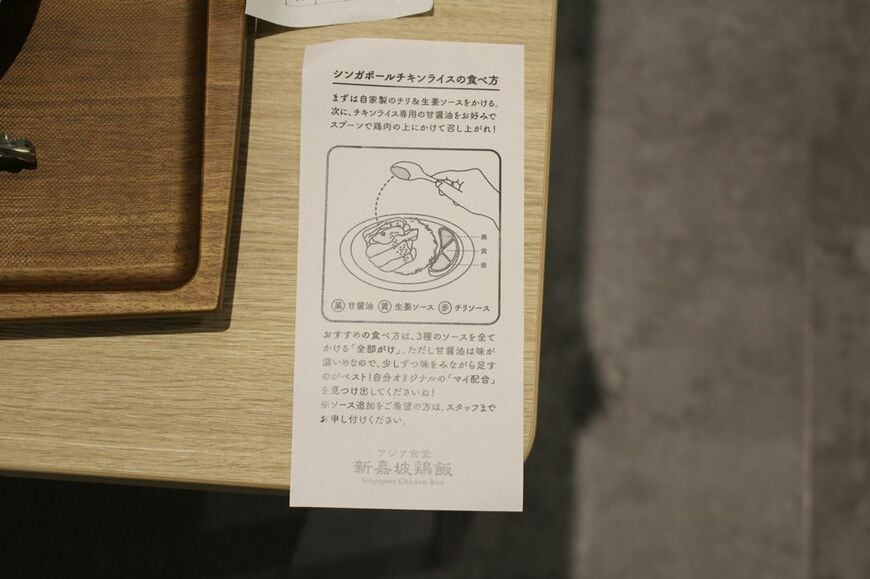 シンガポールチキンライスの食べ方
まずは自家製のチリ&生姜ソースをかける。
次に、チキンライス専用の甘醤油をお好みで
スプーンで鶏肉の上にかけて召し上がれ!
黒
黄
赤
黒 甘醤油 黄 生姜ソース 赤 チリソース
おすすめの食べ方は、3種のソースを全て
かける「全部がけ」。ただし甘醤油は味が
濃いめなので、少しずつ味をみながら足す
のがベスト!自分オリジナルの「マイ配合」
を見つけ出してくださいね!
※ソース追加をご希望の方は、スタッフまで
お申し付けください。
アジア食堂
新嘉坡鶏飯
Singapore Chicken Rice